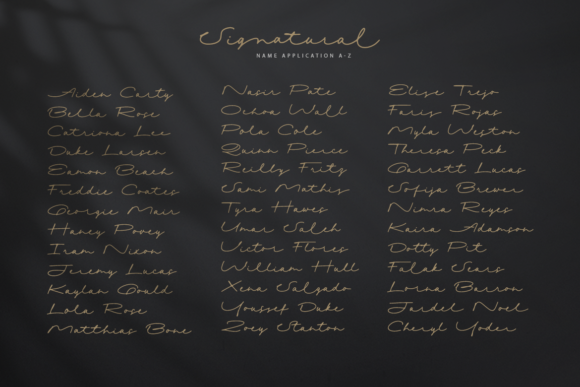 Signatural
NAME APPLICATION A-Z
Aiden Carty
Bella Rose
Catriona Lee
Duke Larsen
Eamon Beach
Freddie Coates
Georgie Mair
Haney Povey
Iram Nixon
Jeremy Lucas
Kaylan Gould
Lola Rose
Matthias Bone
Nasir Pate
Ochoa Wall
Pola Cole
Quinn Pierce
Reilly Fritz
Sami Mathis
Tyra Hawes
Umar Saleh
Victor Flores
William Hall
Xena Salgado
Youssef Duke
Zoey Stanton
Elise Trejo
Faris Rojas
Myla Weston
Theresa Peck
Garrett Lucas
Sofija Brewer
Nimra Reyes
Kaira Adamson
Dotty Pit
Falak Sears
Lorna Barron
Jardel Noel
Cheryl Yoder